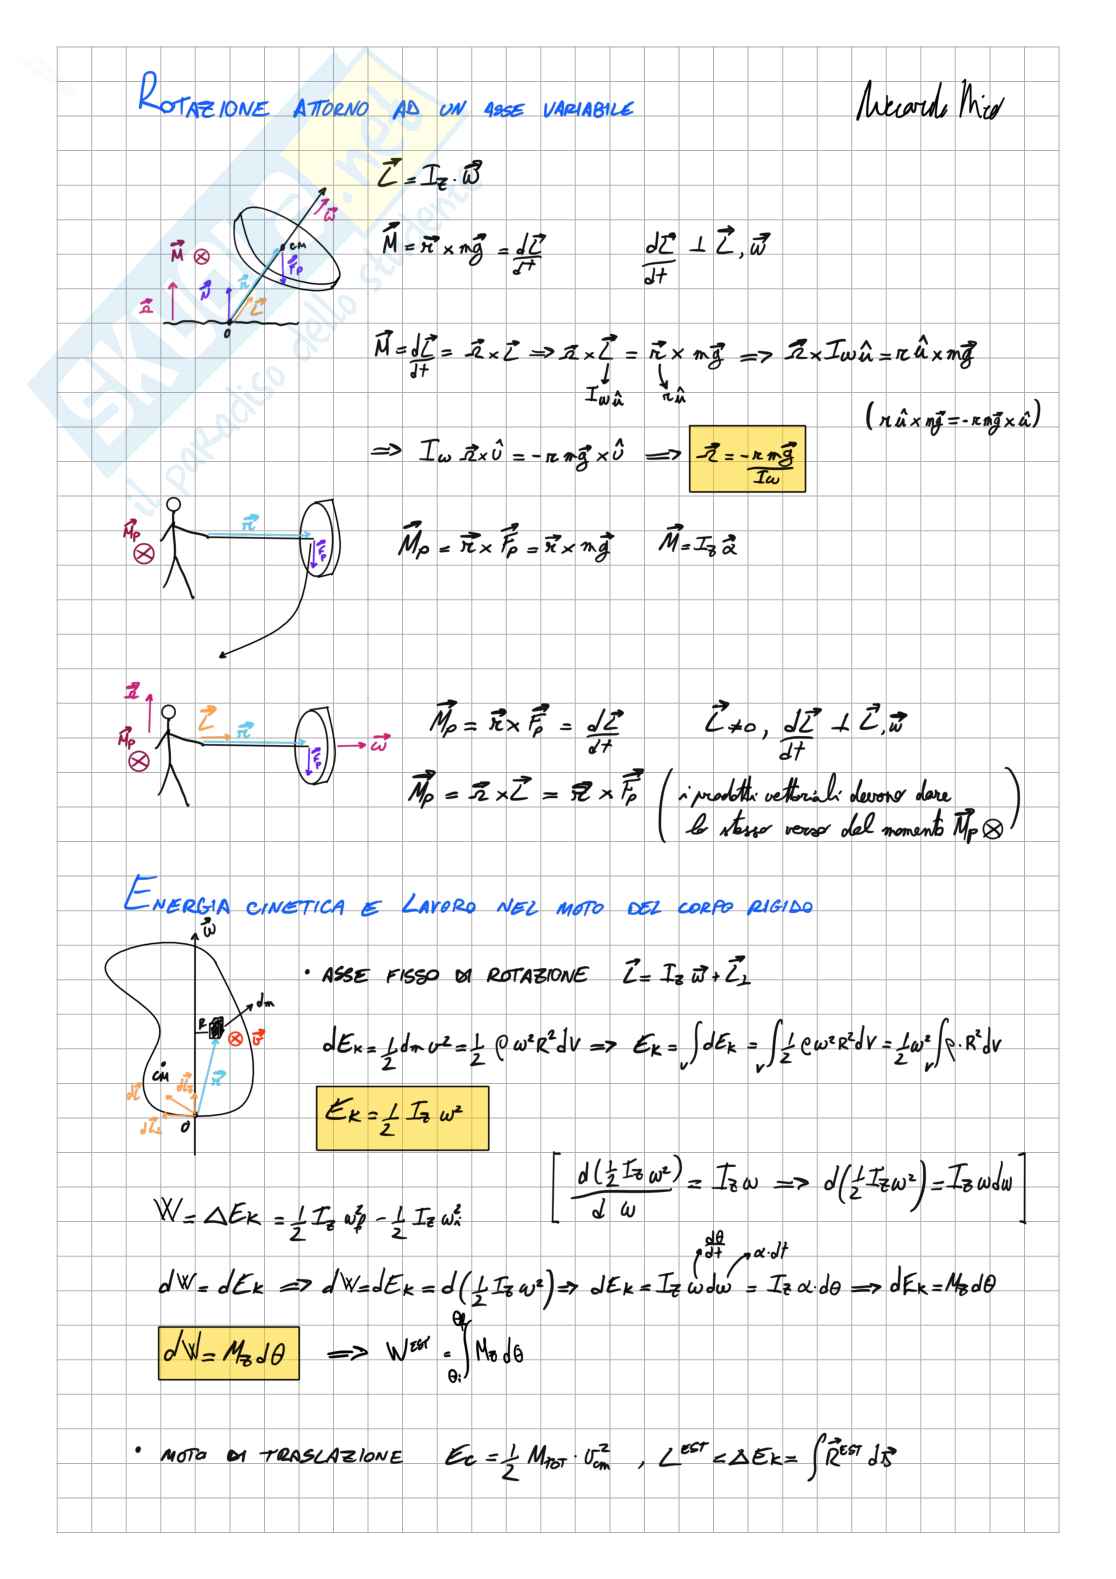 ROTAZIONE ATTORNO AD UN ASSE VARIABILE
Riccardo
SKUOLA.net
il paradiso dello studente
L⃗ = I_z · ω⃗
M⃗ = r⃗ × mg⃗ = dL⃗/dt    dL⃗/dt ⊥ L⃗, ω⃗
M⃗ ⊗ CM ω⃗ F⃗_P r⃗ Ω⃗ N⃗ L⃗ O
M⃗ = dL⃗/dt = Ω⃗ × L⃗ ⇒ Ω⃗ × L⃗ = r⃗ × mg⃗ ⇒ Ω⃗ × Iω û = r û × mg⃗
Iω û    r û
(r û × mg⃗ = - r mg⃗ × û)
⇒ Iω Ω⃗ × û = - r mg⃗ × û ⇒ Ω⃗ = - r mg⃗ / Iω
M⃗_P ⊗ r⃗ F⃗_P
M⃗_P = r⃗ × F⃗_P = r⃗ × mg⃗    M⃗ = I_z α⃗
Ω⃗ L⃗ r⃗ M⃗_P ⊗ F⃗_P ω⃗
M⃗_P = r⃗ × F⃗_P = dL⃗/dt    L⃗ ≠ 0, dL⃗/dt ⊥ L⃗, ω⃗
M⃗_P = Ω⃗ × L⃗ = r⃗ × F⃗_P (i prodotti vettoriali devono dare
lo stesso verso del momento M⃗_P ⊗)
ENERGIA CINETICA E LAVORO NEL MOTO DEL CORPO RIGIDO
ω⃗ R dm ⊗ v⃗ CM r⃗ dL⃗ dL⃗_z dL⃗_⊥ O
• ASSE FISSO DI ROTAZIONE    L⃗ = I_z ω⃗ + L⃗_⊥
dE_K = 1/2 dm v² = 1/2 ρ ω² R² dV ⇒ E_K = ∫_V dE_K = ∫_V 1/2 ρ ω² R² dV = 1/2 ω² ∫_V ρ · R² dV
E_K = 1/2 I_z ω²
[ d(1/2 I_z ω²) / d ω = I_z ω ⇒ d(1/2 I_z ω²) = I_z ω dω ]
W = ΔE_K = 1/2 I_z ω_f² - 1/2 I_z ω_i²
dθ/dt    α · dt
dW = dE_K ⇒ dW = dE_K = d(1/2 I_z ω²) ⇒ dE_K = I_z ω dω = I_z α · dθ ⇒ dE_K = M_z dθ
dW = M_z dθ ⇒ W^EST = ∫_θi^θf M_z dθ
• MOTO DI TRASLAZIONE    E_C = 1/2 M_TOT · v_cm² , L^EST = ΔE_K = ∫ R⃗^EST ds⃗